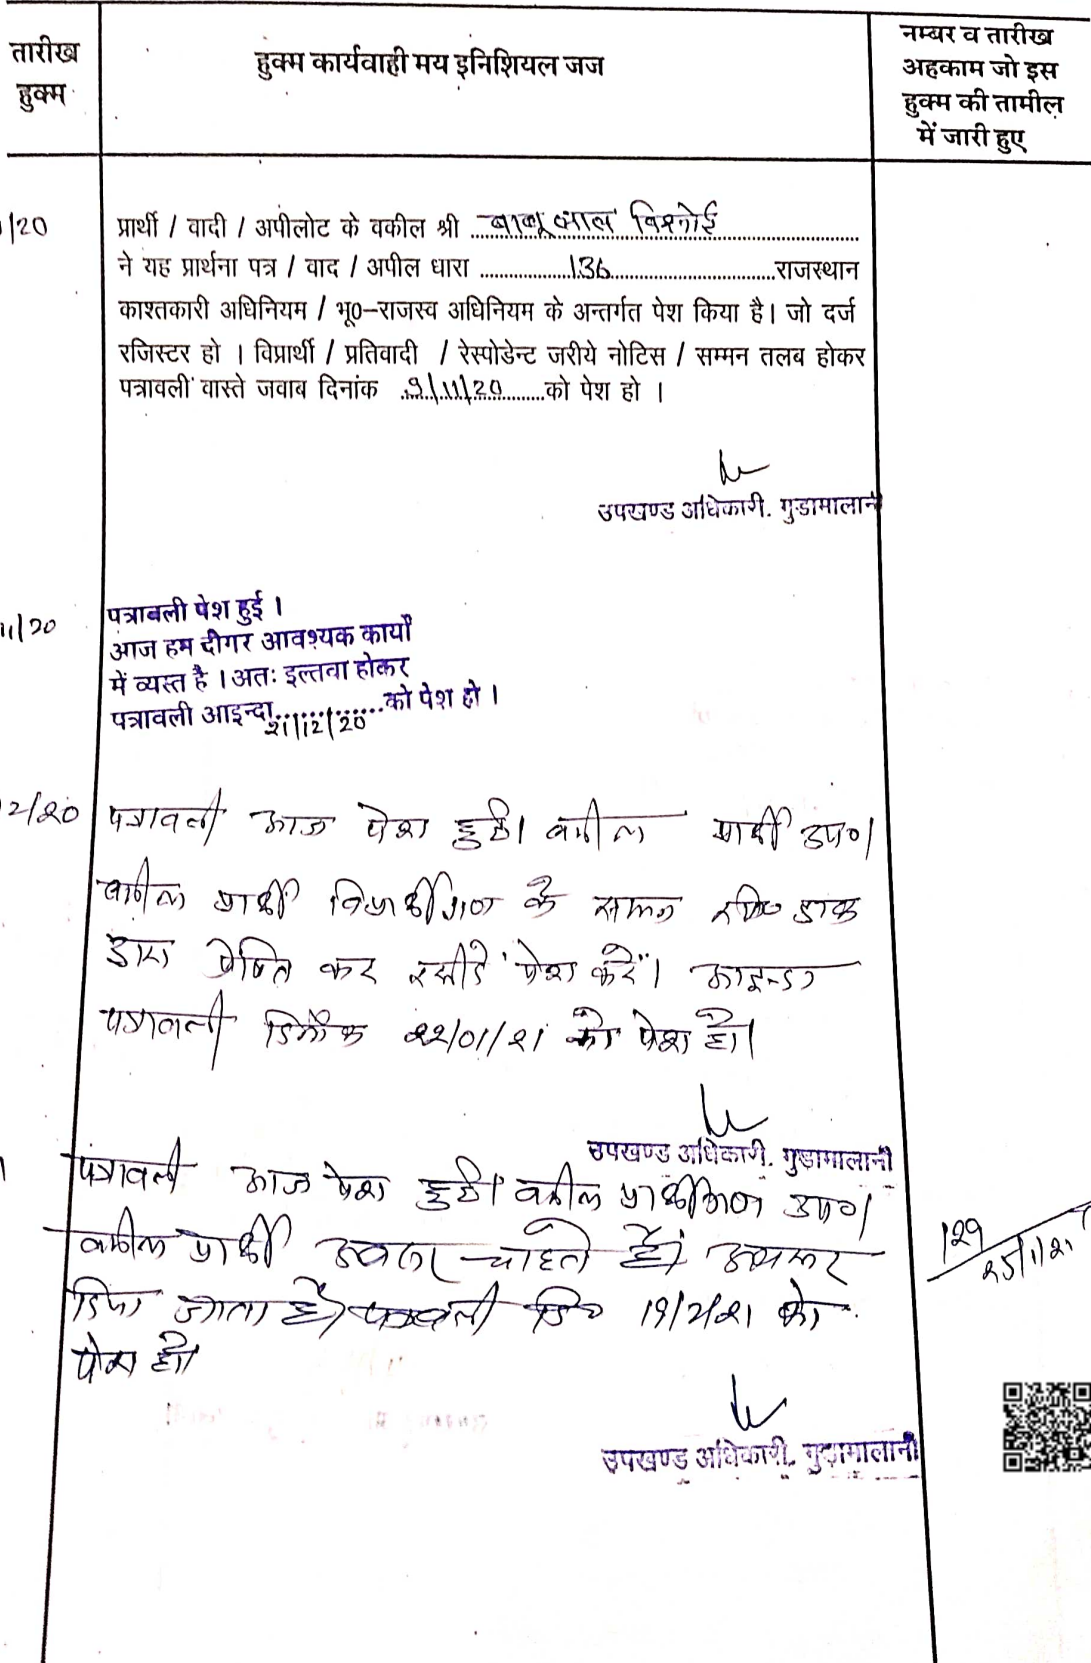 तारीख
हुक्म
हुक्म कार्यवाही मय इनिशियल जज
नम्बर व तारीख
अहकाम जो इस
हुक्म की तामील
में जारी हुए
/20
प्रार्थी / वादी / अपीलोट के वकील श्री बाबूलाल विश्नोई
ने यह प्रार्थना पत्र / वाद / अपील धारा 136 राजस्थान
काश्तकारी अधिनियम / भू०-राजस्व अधिनियम के अन्तर्गत पेश किया है। जो दर्ज
रजिस्टर हो । विप्रार्थी / प्रतिवादी / रेस्पोडेन्ट जरीये नोटिस / सम्मन तलब होकर
पत्रावली वास्ते जवाब दिनांक 9/11/20 को पेश हो ।
उपखण्ड अधिकारी. गुडामालानी
11/20
पत्रावली पेश हुई ।
आज हम दीगर आवश्यक कार्यों
में व्यस्त है । अतः इल्तवा होकर
पत्रावली आइन्दा 21/12/20 को पेश हो ।
2/20
पत्रावली आज पेश हुई। वकील प्रार्थी उप०।
वकील प्रार्थी विप्रार्थीगण के सम्मन रजि० डाक
द्वारा प्रेषित कर रसीदें पेश करें। आइन्दा
पत्रावली दिनाँक 22/01/21 को पेश हो।
उपखण्ड अधिकारी. गुडामालानी
पत्रावली आज पेश हुई। वकील प्रार्थीगण उप०।
वकील प्रार्थी अवसर चाहते हैं। अवसर
दिया जाता है। पत्रावली दि० 19/2/21 को
पेश हो।
129
25/1/21
उपखण्ड अधिकारी. गुडामालानी